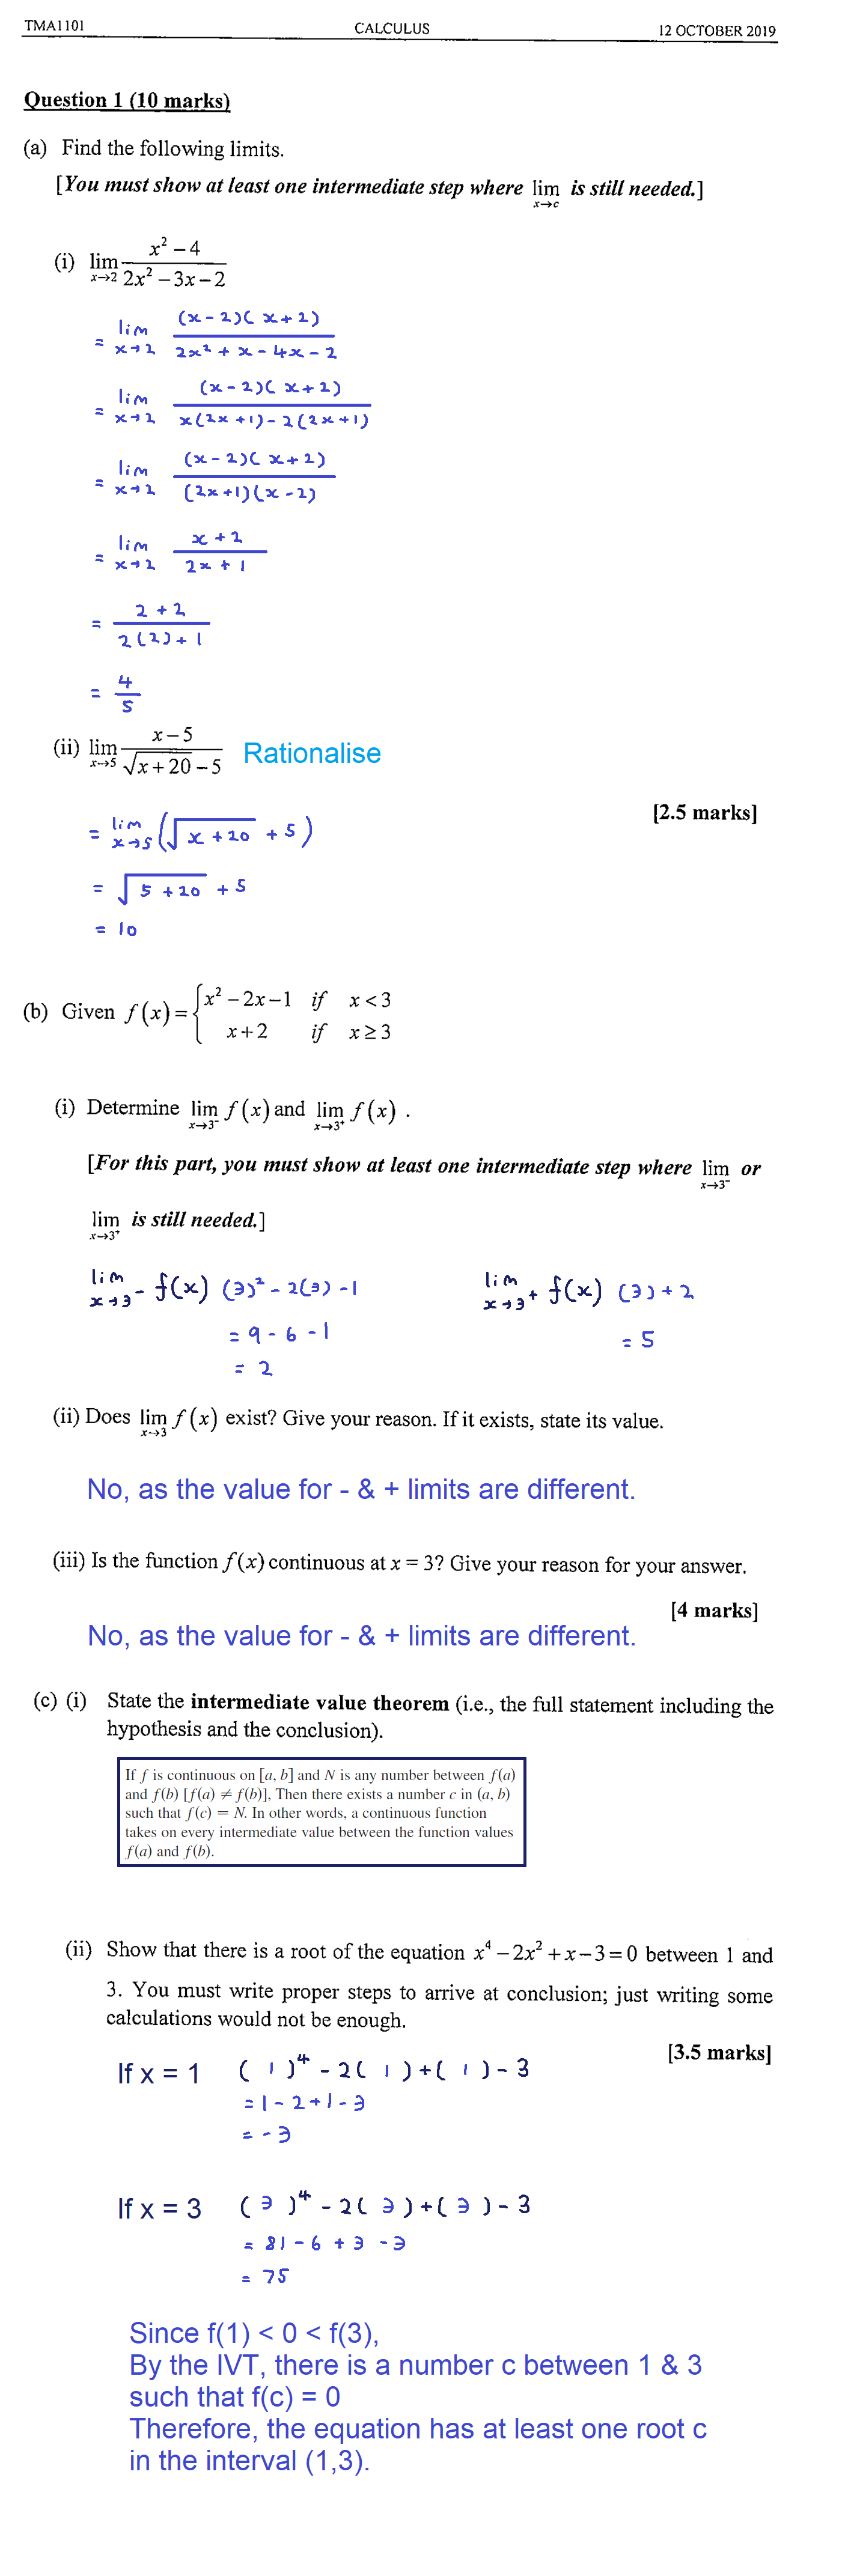 TMA1101 CALCULUS 12 OCTOBER 2019
Question 1 (10 marks)
(a) Find the following limits.
[You must show at least one intermediate step where lim x→c is still needed.]
(i) lim x→2 (x² – 4)/(2x² – 3x – 2)
= lim x→2 ((x-2)(x+2))/(2x² + x - 4x - 2)
= lim x→2 ((x-2)(x+2))/(x(2x+1) - 2(2x+1))
= lim x→2 ((x-2)(x+2))/((2x+1)(x-2))
= lim x→2 (x+2)/(2x+1)
= (2+2)/(2(2)+1)
= 4/5
(ii) lim x→5 (x–5)/(√(x+20) – 5) Rationalise
[2.5 marks]
= lim x→5 (√(x+20) + 5)
= √(5+20) + 5
= 10
(b) Given f(x) = { x² – 2x – 1 if x < 3
x + 2 if x ≥ 3
(i) Determine lim x→3⁻ f(x) and lim x→3⁺ f(x) .
[For this part, you must show at least one intermediate step where lim x→3⁻ or
lim x→3⁺ is still needed.]
lim x→3⁻ f(x) (3)² - 2(3) - 1 lim x→3⁺ f(x) (3) + 2
= 9 - 6 - 1 = 5
= 2
(ii) Does lim x→3 f(x) exist? Give your reason. If it exists, state its value.
No, as the value for - & + limits are different.
(iii) Is the function f(x) continuous at x = 3? Give your reason for your answer.
[4 marks]
No, as the value for - & + limits are different.
(c) (i) State the intermediate value theorem (i.e., the full statement including the
hypothesis and the conclusion).
If f is continuous on [a, b] and N is any number between f(a)
and f(b) [f(a) ≠ f(b)], Then there exists a number c in (a, b)
such that f(c) = N. In other words, a continuous function
takes on every intermediate value between the function values
f(a) and f(b).
(ii) Show that there is a root of the equation x⁴ – 2x² + x – 3 = 0 between 1 and
3. You must write proper steps to arrive at conclusion; just writing some
calculations would not be enough.
[3.5 marks]
If x = 1 (1)⁴ - 2(1) + (1) - 3
= 1 - 2 + 1 - 3
= - 3
If x = 3 (3)⁴ - 2(3) + (3) - 3
= 81 - 6 + 3 - 3
= 75
Since f(1) < 0 < f(3),
By the IVT, there is a number c between 1 & 3
such that f(c) = 0
Therefore, the equation has at least one root c
in the interval (1,3).